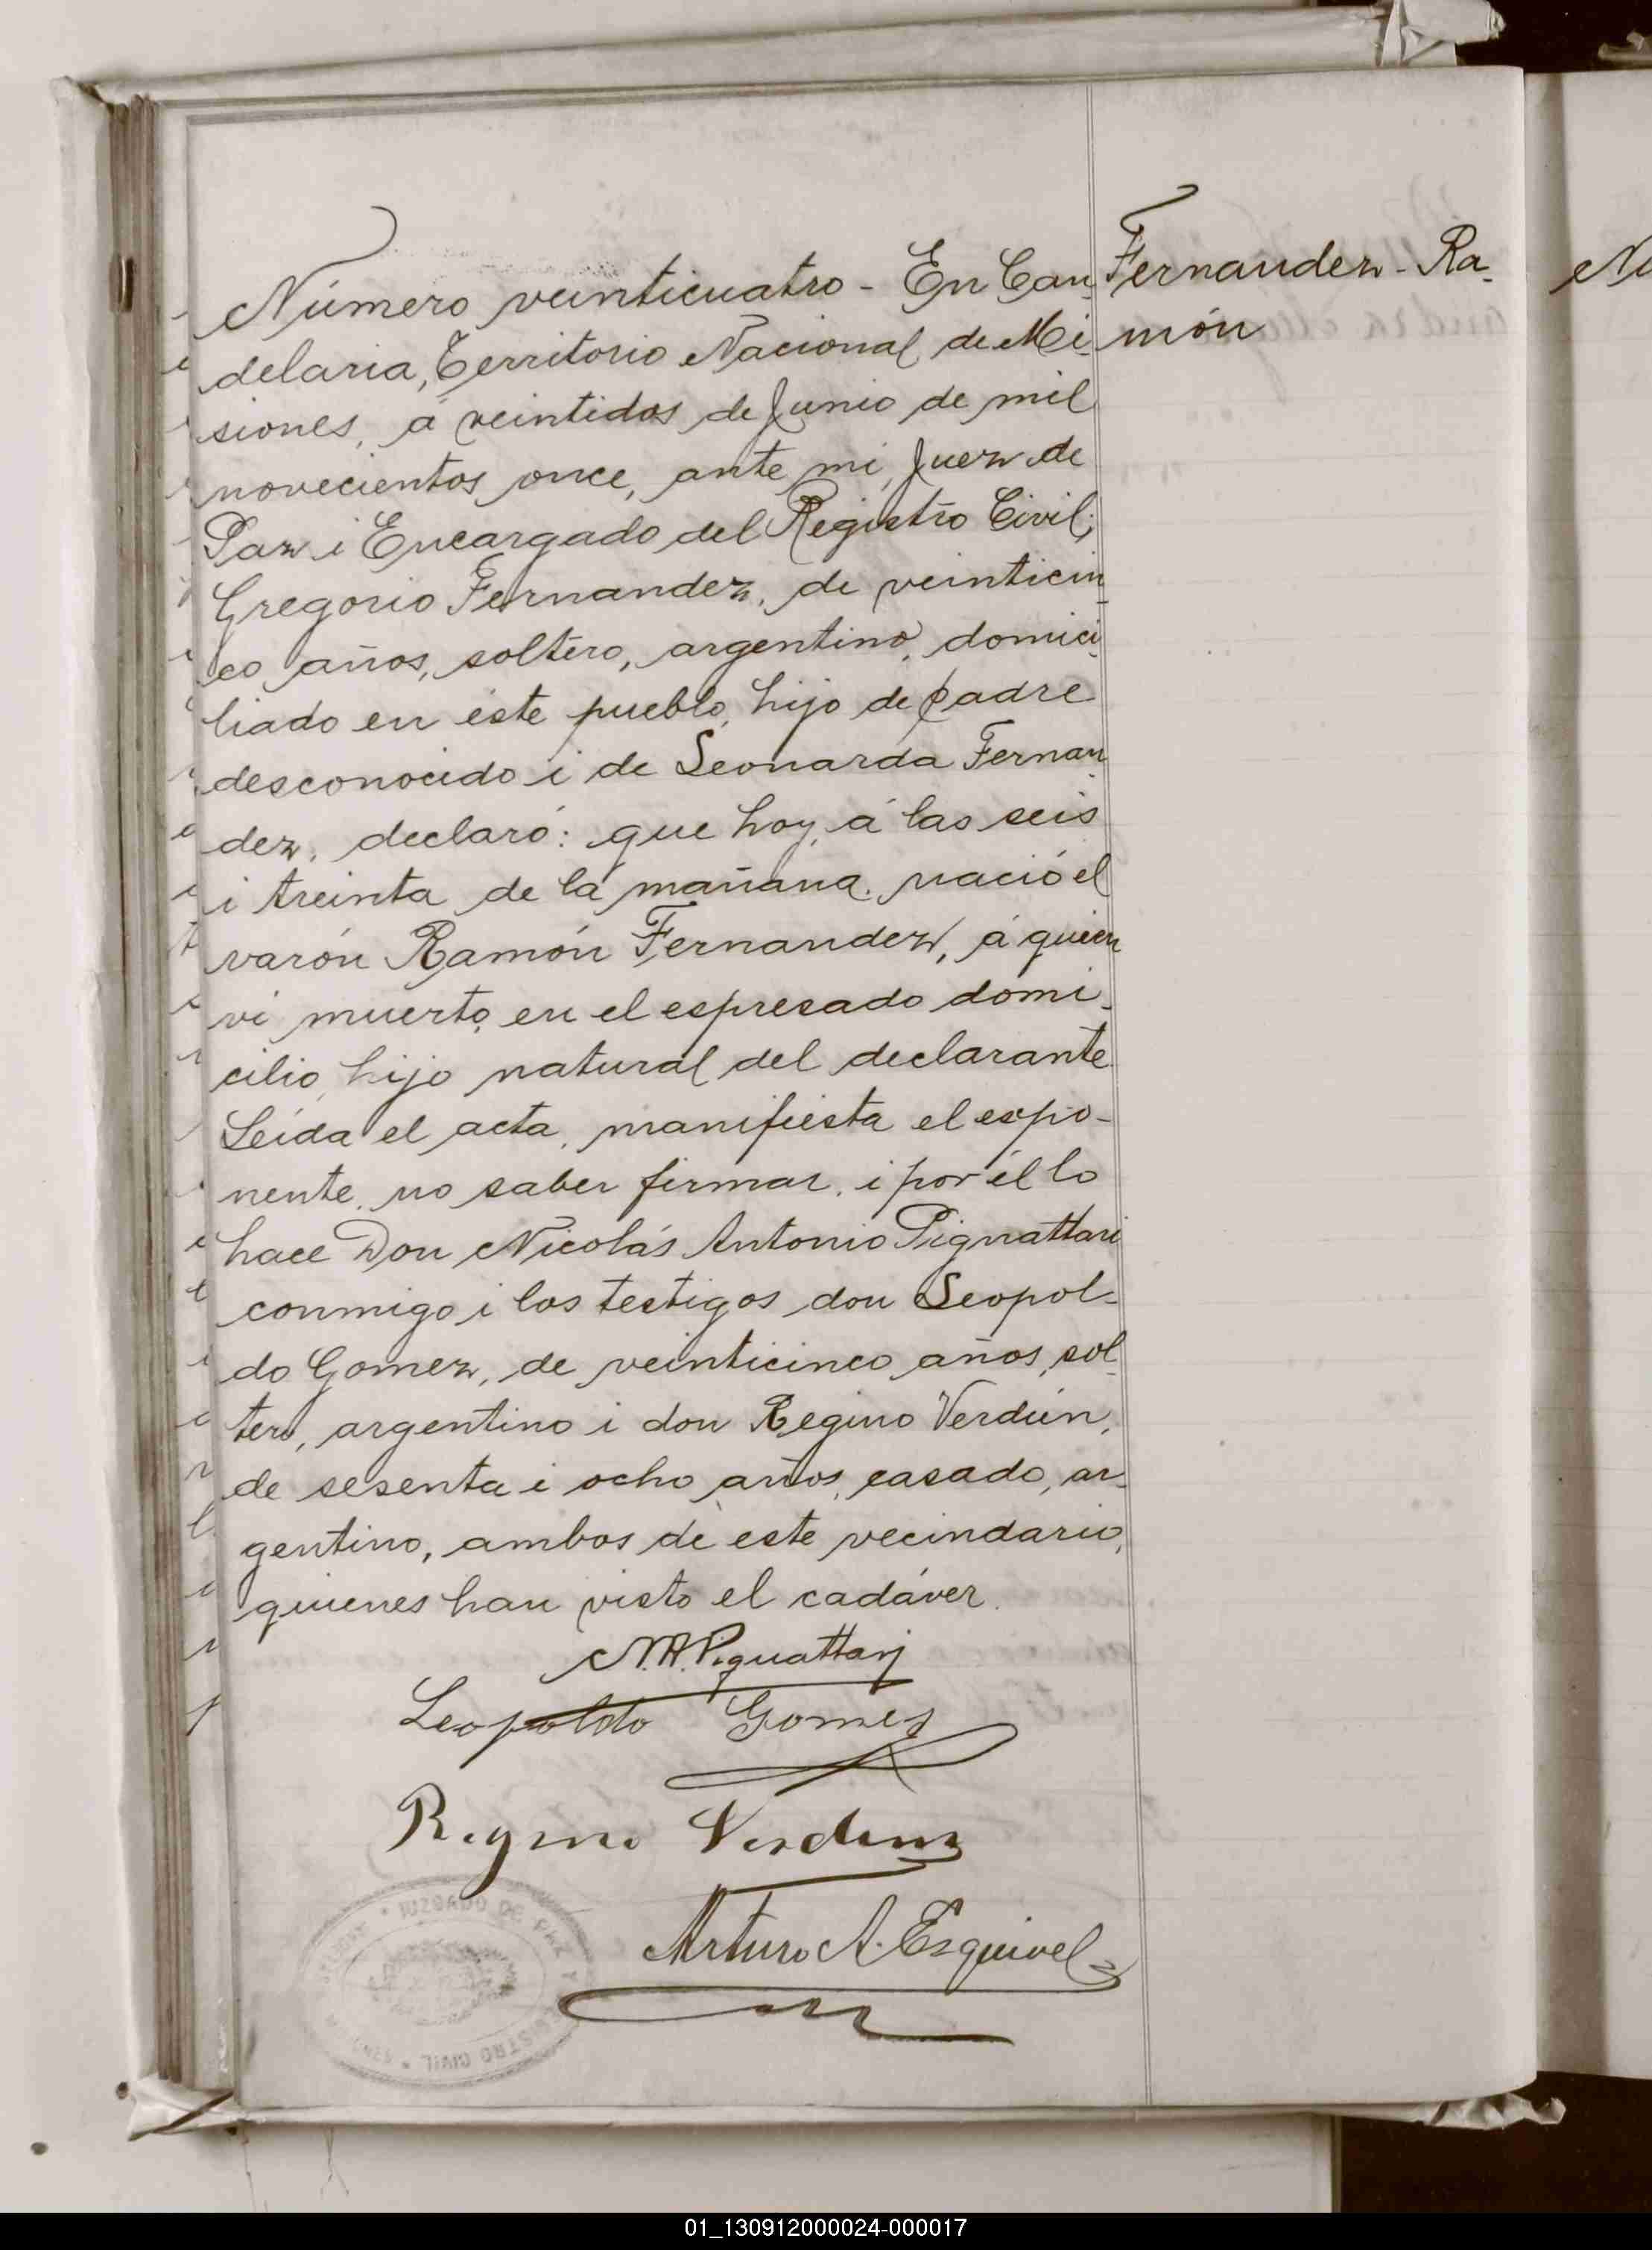 Fernandez - Ra-
món
Número veinticuatro - En Can-
delaria, Territorio Nacional de Mi-
siones, á veintidos de Junio de mil
novecientos once, ante mi, Juez de
Paz i Encargado del Registro Civil;
Gregorio Fernandez, de veinticin-
co años, soltero, argentino, domici-
liado en éste pueblo, hijo de padre
desconocido i de Leonarda Fernan-
dez, declaró: que hoy, á las seis
i treinta de la mañana, nació el
varón Ramón Fernandez, á quien
vi muerto, en el espresado domi-
cilio, hijo natural del declarante
Leída el acta, manifiesta el espo-
nente, no saber firmar, i por él lo
hace Don Nicolás Antonio Pignattari
conmigo i los testigos don Leopol-
do Gomez, de veinticinco años, sol-
tero, argentino i don Regino Verdún,
de sesenta i ocho años, casado, ar-
gentino, ambos de este vecindario,
quienes han visto el cadáver.
N.A. Pignattari
Leopoldo Gomez
Regino Verdun
Arturo A. Esquivel
JUZGADO DE PAZ Y REGISTRO CIVIL
01_130912000024-000017